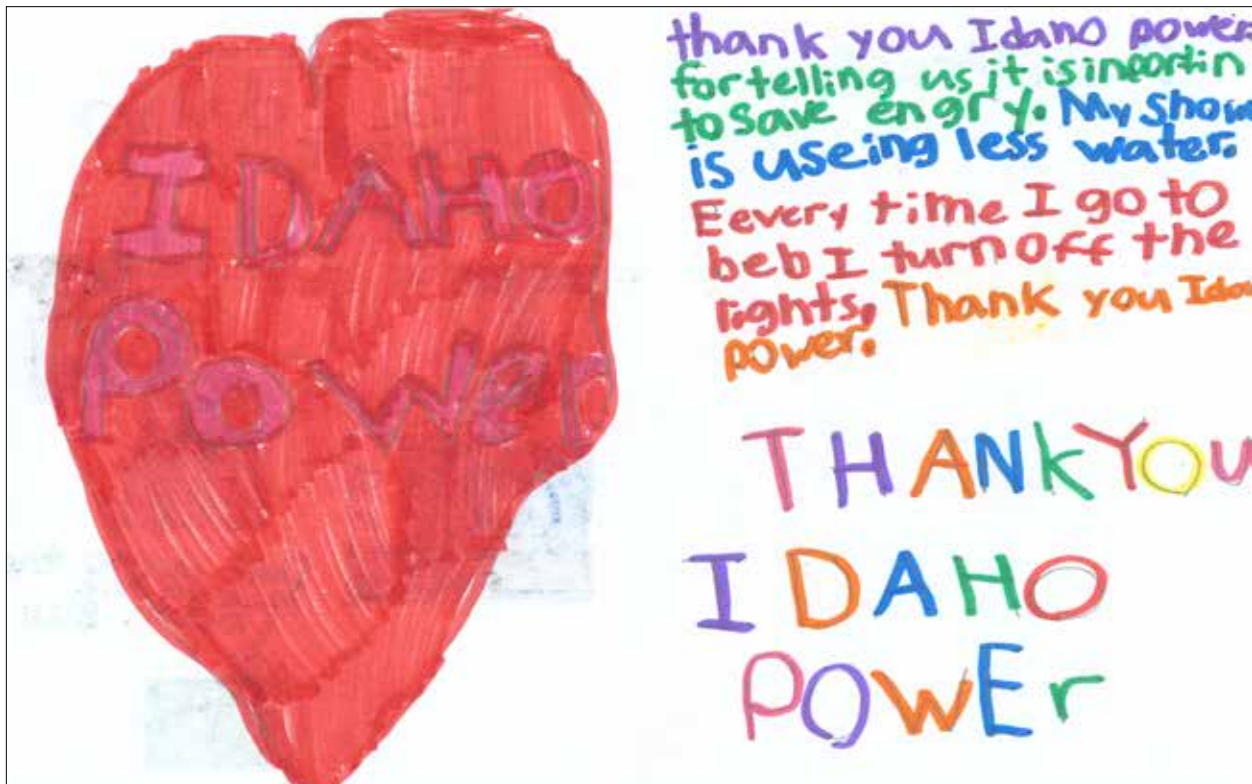 IDAHO
Power
thank you Idaho power
for telling us it is inportin
to save engry. My show
is useing less water.
Eevery time I go to
beb I turn off the
lights, Thank you Idah
power.
THANK YOU
IDAHO
POWEr